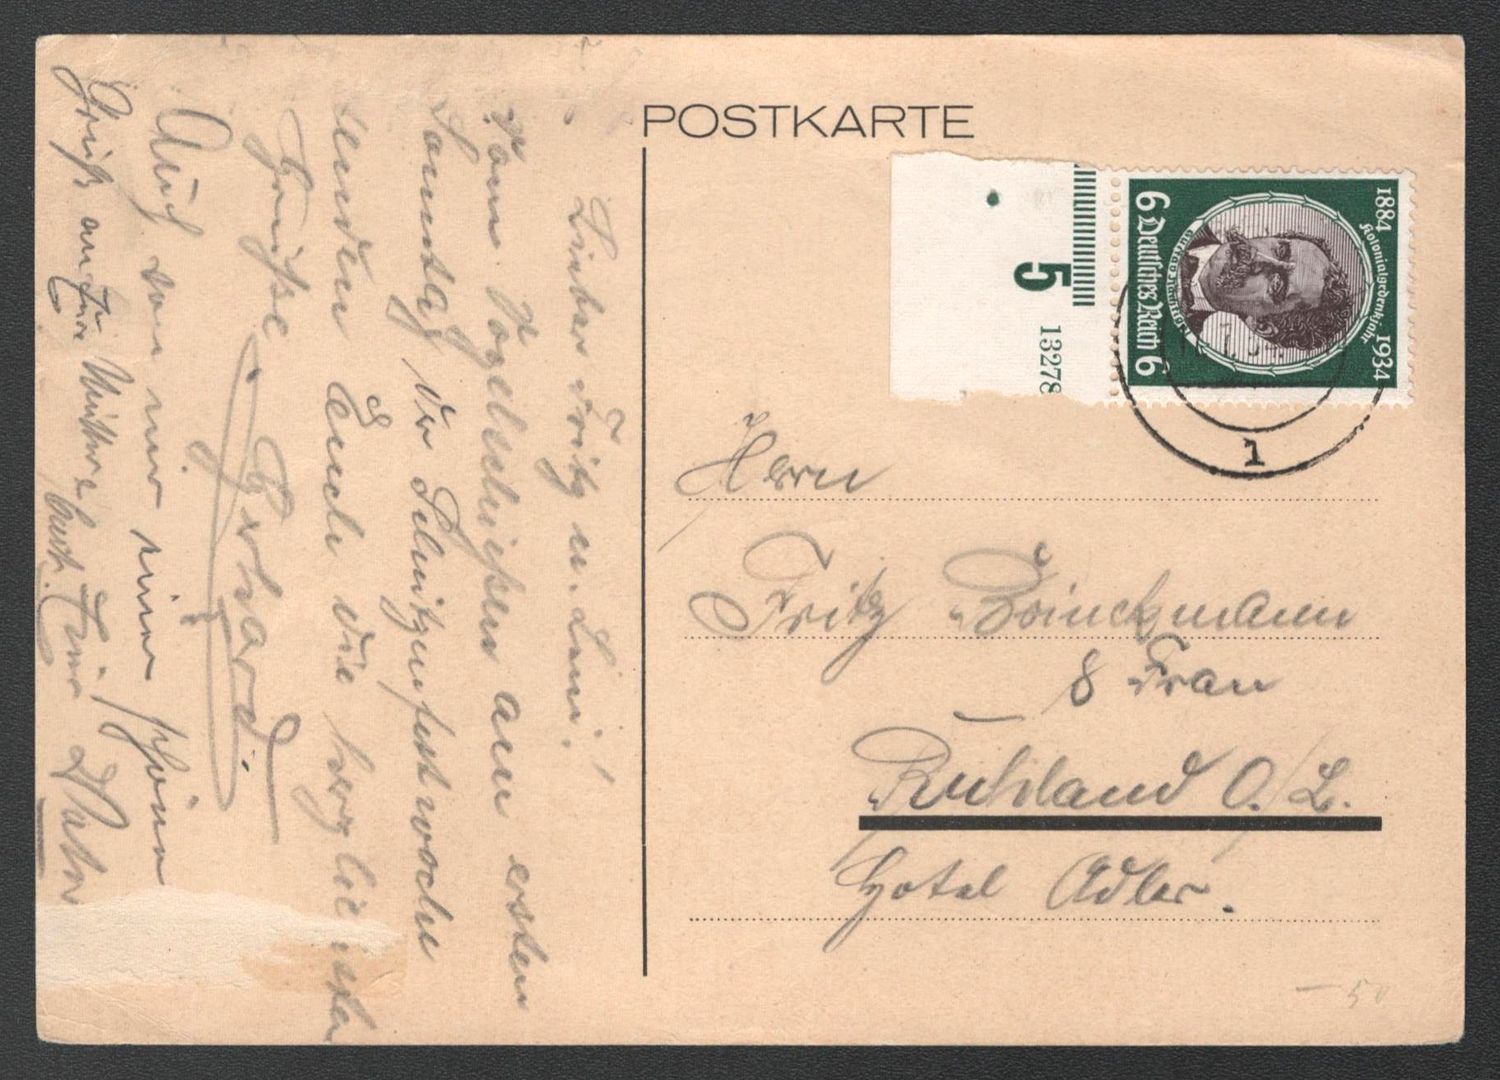 POSTKARTE
Lieber Fritz u. Leni!
Vom Vogelschießen am ersten
Sonntag der Schützenfestwoche
senden Euch die herzlichsten
Grüße Gerhard.
Auch von mir einen schönen
Gruß an Eure Mutter auch
1884 Kolonialgedenkjahr 1934
6 Deutsches Reich 6
5
13278
1
Herrn
Fritz Brinckmann
& Frau
Ruhland O./L.
Hotel Adler.